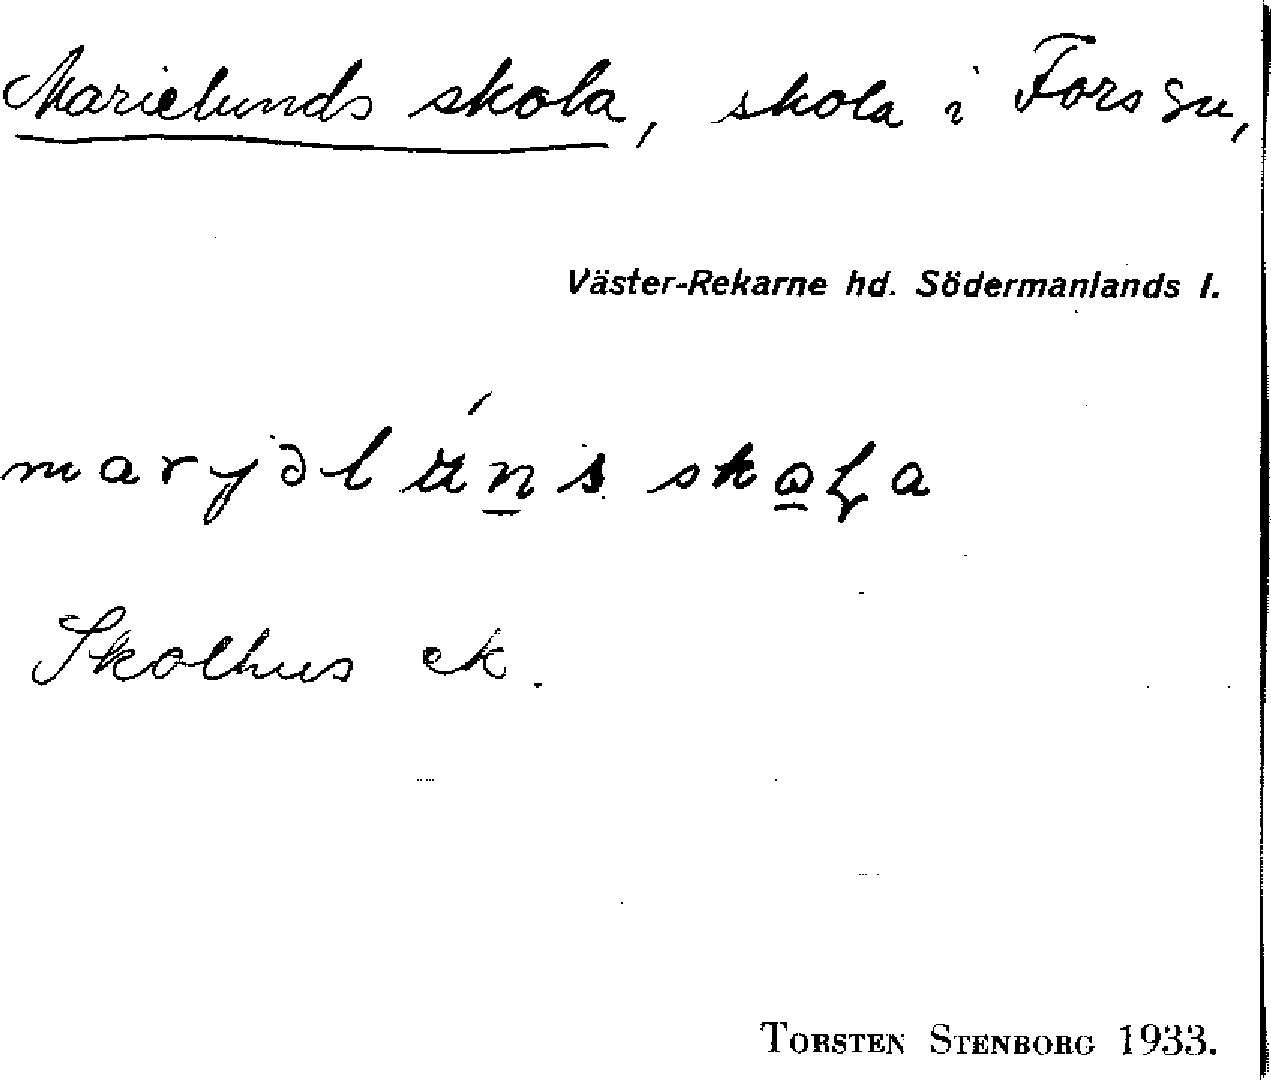 Marielunds skola, skola i Fors sn,
Väster-Rekarne hd. Södermanlands l.
skola
Skolhus ek.
TORSTEN STENBORG 1933.